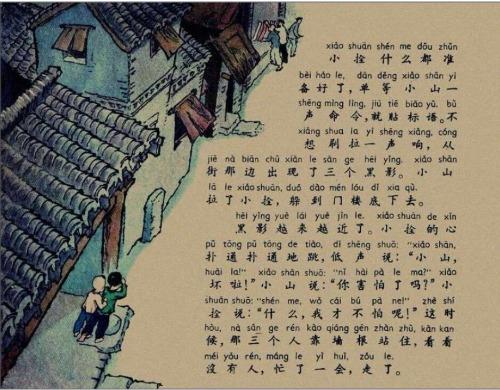 xiǎo shuān shén me dōu zhǔn
小拴什么都准
bèi hǎo le, dān děng xiǎo shān yì
备好了,单等小山一
shēng mìng lìng, jiù tiē biāo yǔ. bù
声命令,就贴标语。不
xiǎng shua la yì shēng xiǎng, cóng
想刷拉一声响,从
jiē nà biān chū xiàn le sān ge hēi yǐng. xiǎo shān
街那边出现了三个黑影。小山
lā le xiǎo shuān, duǒ dào mén lóu dǐ xia qù.
拉了小拴,躲到门楼底下去。
hēi yǐng yuè lái yuè jìn le. xiǎo shuān de xīn
黑影越来越近了。小拴的心
pū tōng pū tōng de tiào, dī shēng shuō: "xiǎo shān,
扑通扑通地跳,低声说:“小山,
huài la!" xiǎo shān shuō: "nǐ hài pà le ma?" xiǎo
坏啦!”小山说:“你害怕了吗?”小
shuān shuō: "shén me, wǒ cái bú pà ne!" zhè shí
拴说:“什么,我才不怕呢!”这时
hòu, nà sān ge rén kào qiáng gēn zhàn zhù, kàn kan
候,那三个人靠墙根站住,看看
méi yǒu rén, máng le yì huì, zǒu le.
没有人,忙了一会,走了。